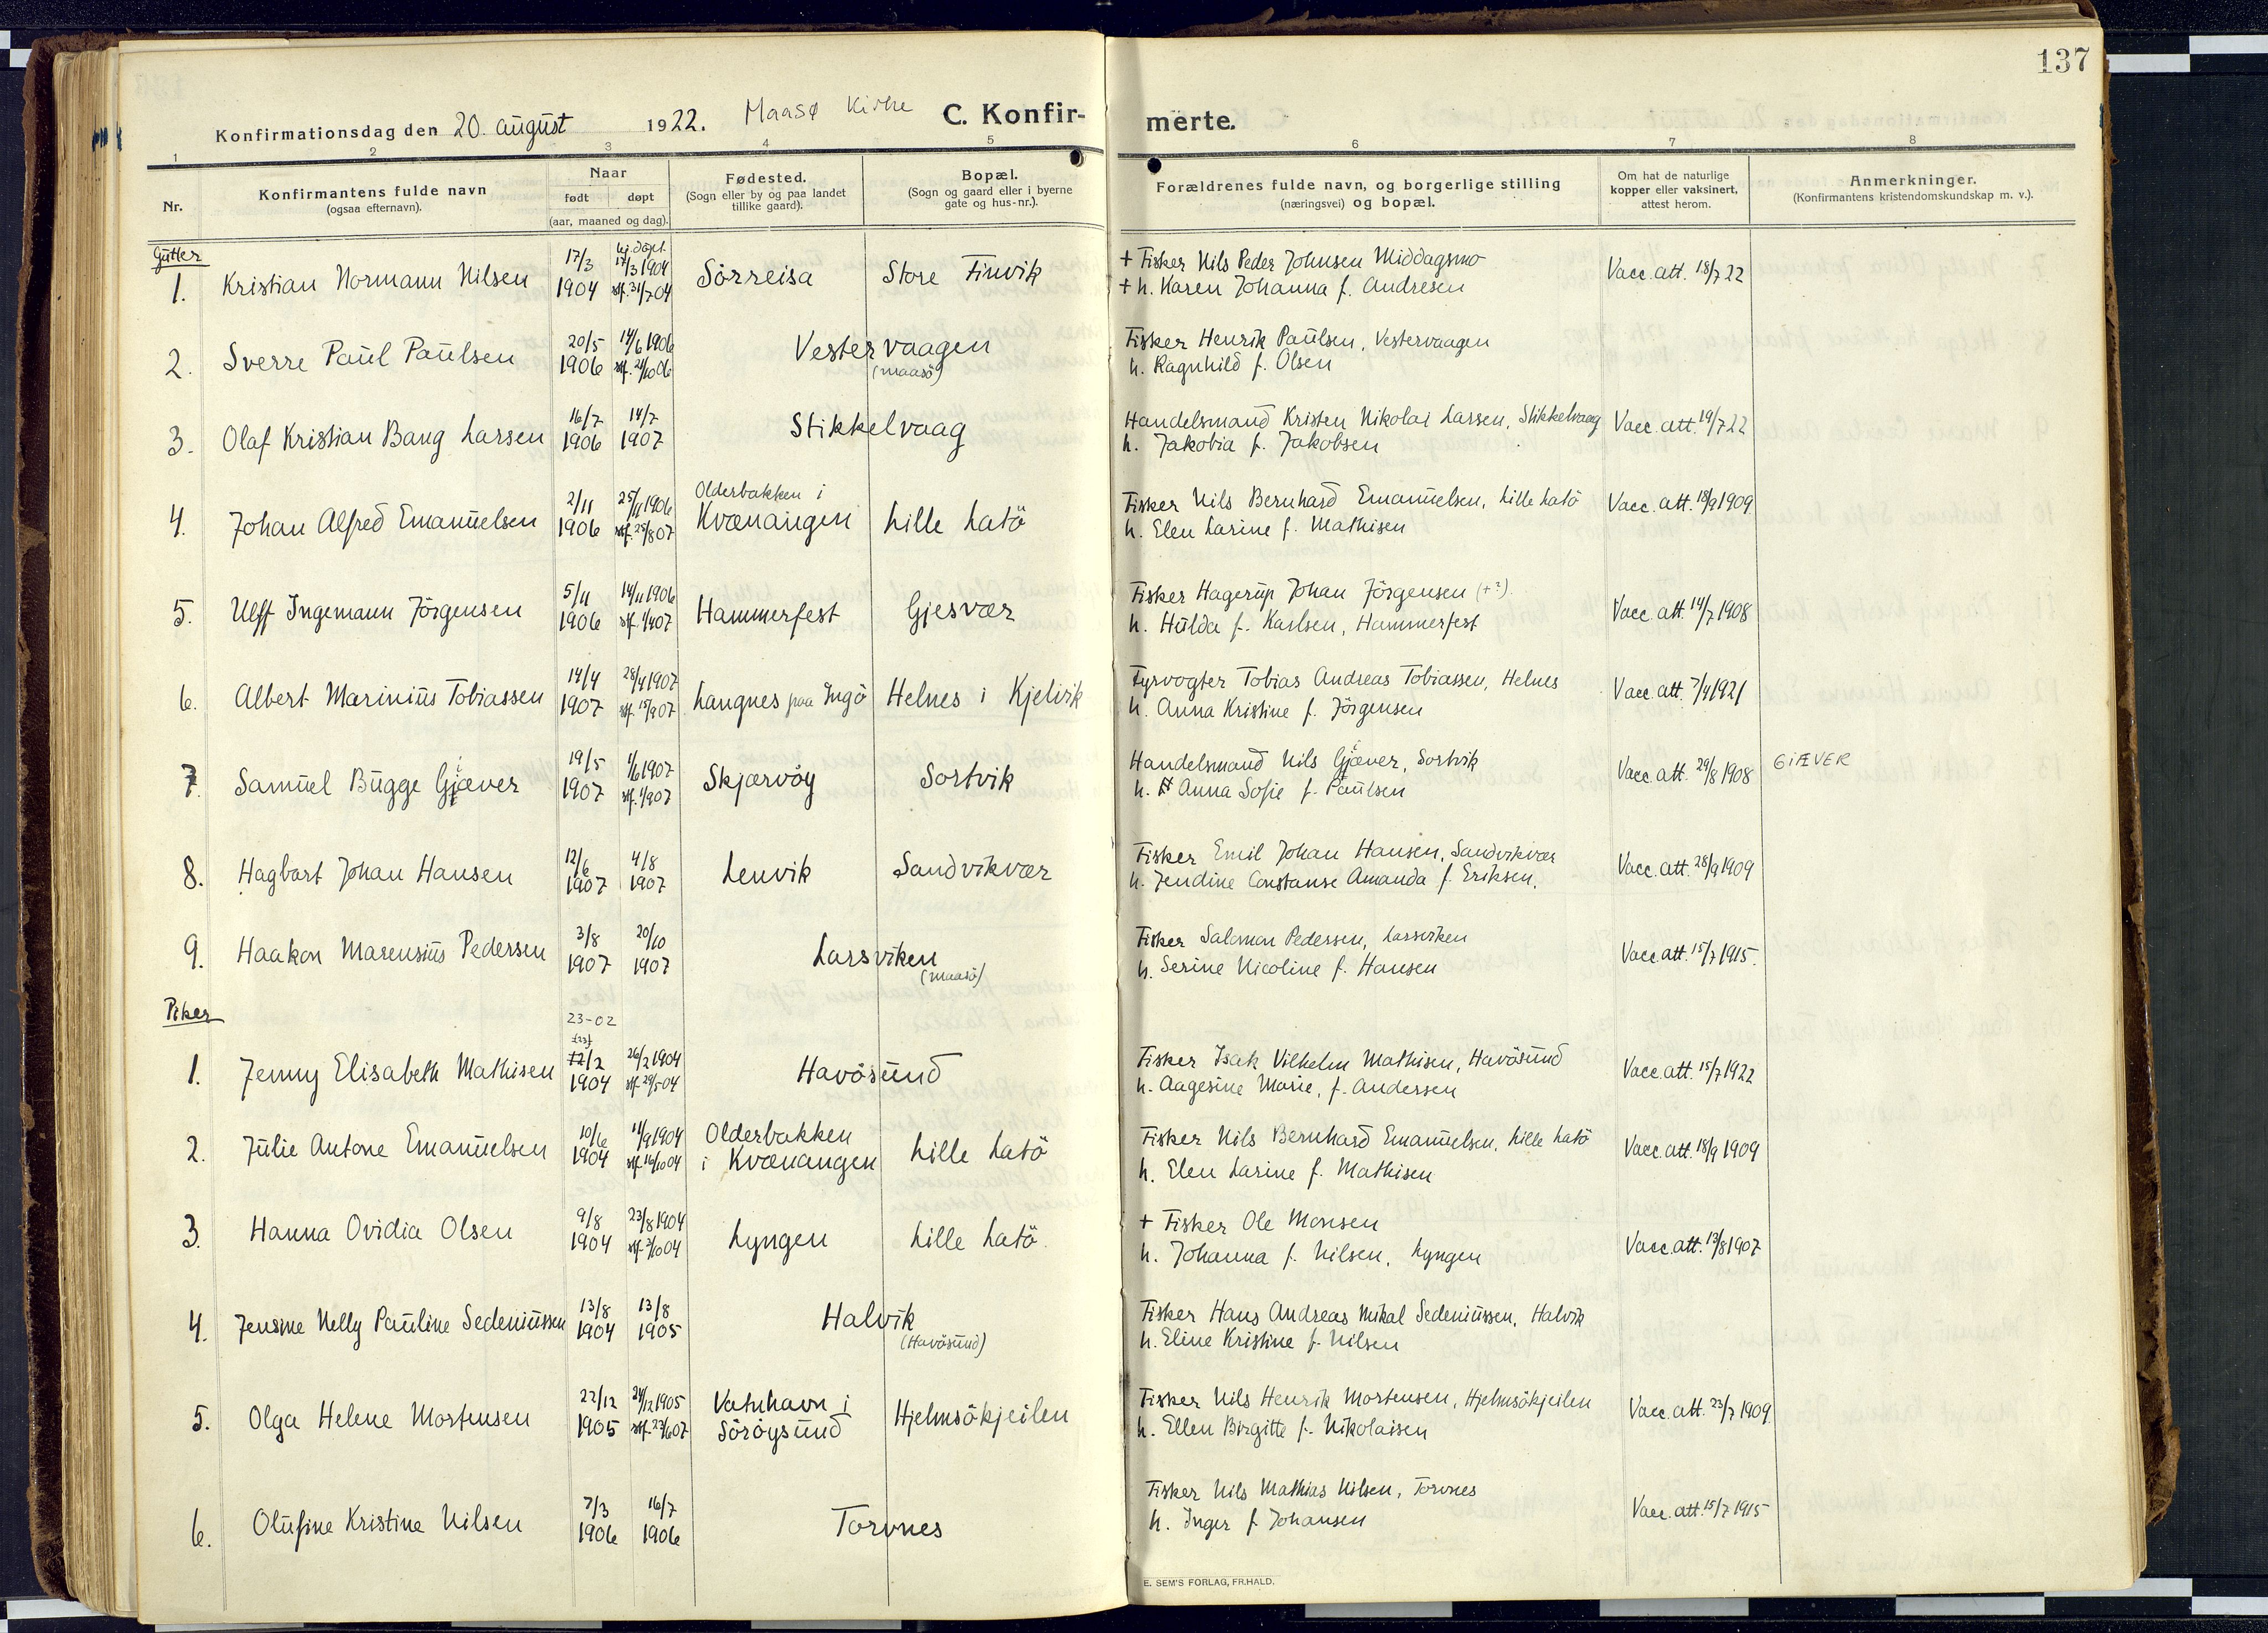 137
Konfirmationsdag den 20. august 1922. Maasø Kirke
C. Konfir-
merte.
1 2 3 4 5 6 7 8
Nr.
Konfirmantens fulde navn
(ogsaa efternavn).
Naar
født døpt
(aar, maaned og dag).
Fødested.
(Sogn eller by og paa landet
tillike gaard).
Bopæl.
(Sogn og gaard eller i byerne
gate og hus-nr.).
Forældrenes fulde navn, og borgerlige stilling
(næringsvei) og bopæl.
Om hat de naturlige
kopper eller vaksinert,
attest herom.
Anmerkninger.
(Konfirmantens kristendomskundskap m. v.).
Gutter
1. Kristian Normann Nilsen
17/3
1904
hj.døpt.
17/3 1904
stf. 31/7 04
Sörreisa
Store Finvik
+ Fisker Nils Peder Johnsen Middagsmo
+ h. Karen Johanna f. Andresen
Vacc. att. 18/7 22
2. Sverre Paul Paulsen
20/5
1906
14/6 1906
stf. 21/10 06
Vestervaagen
(Maasö)
Fisker Henrik Paulsen, Vestervaagen
h. Ragnhild f. Olsen
3. Olaf Kristian Bang Larsen
16/7
1906
14/7
1907
Stikkelvaag
Handelsmand Kristen Nikolai Larsen, Stikkelvaag
h. Jakobia f. Jakobsen
Vacc. att. 19/7 22
4. Johan Alfred Emanuelsen
2/11
1906
25/11 1906
stf. 25/8 07
Olderbakken i
Kvænangen
Lille Latö
Fisker Nils Bernhard Emanuelsen, Lille Latö
h. Elen Larine f. Mathisen
Vacc. att. 18/9 1909
5. Ulff Ingemann Jörgensen
5/11
1906
14/11 1906
stf. 1/4 07
Hammerfest
Gjesvær
Fisker Hagerup Johan Jörgensen (+?)
h. Hulda f. Karlsen, Hammerfest
Vacc. att. 14/7 1908
6. Albert Marinius Tobiassen
14/4
1907
28/4 1907
stf. 15/9 07
Langnes paa Ingö
Helnes i Kjelvik
Fyrvogter Tobias Andreas Tobiassen, Helnes
h. Anna Kristine f. Jörgensen
Vacc. att. 7/4 1921
7. Samuel Bugge Gjæver
19/5
1907
1/6 1907
stf. 1/9 07
Skjærvöy
Sortvik
Handelsmand Nils Gjæver, Sortvik
h. Anna Sofie f. Paulsen
Vacc. att. 29/8 1908
GIÆVER
8. Hagbart Johan Hansen
12/6
1907
4/8
1907
Lenvik
Sandvikvær
Fisker Emil Johan Hansen, Sandvikvær
h. Jendine Constanse Amanda f. Eriksen.
Vacc. att. 28/9 1909
9. Haakon Marensius Pedersen
3/8
1907
20/10
1907
Larsviken
(Maasö)
Fisker Salamon Pedersen, Larsviken
h. Serine Nicoline f. Hansen
Vacc. att. 15/7 1915.
Piker
23-02
(23)
1. Jenny Elisabeth Mathisen
12/2
1904
26/2 1904
stf. 29/5 04
Havösund
Fisker Isak Vilhelm Mathisen, Havösund
h. Aagesine Marie, f. Andersen
Vacc. att. 15/7 1922
2. Julie Antone Emanuelsen
10/6
1904
11/9 1904
stf. 16/10 04
Olderbakken
i Kvænangen
Lille Latö
Fisker Nils Bernhard Emanuelsen, Lille Latö
h. Elen Larine f. Mathisen
Vacc. att. 18/9 1909
3. Hanna Ovidia Olsen
9/8
1904
23/8 1904
stf. 2/10 04
Lyngen
Lille Latö.
+ Fisker Ole Monsen
h. Johanna f. Nilsen, Lyngen
Vacc. att. 13/8 1907
4. Jensine Nelly Pauline Sedeniussen
13/8
1904
13/8
1905
Halvik
(Havösund)
Fisker Hans Andreas Mikal Sedeniussen, Halvik
h. Eline Kristine f. Nilsen
5. Olga Helene Mortensen
22/12
1905
24/12 1905
stf. 23/6 07
Vatnhavn i
Söröysund
Hjelmsökjeilen
Fisker Nils Henrik Mortensen, Hjelmsökjeilen
h. Ellen Birgitte f. Nikolaisen
Vacc. att. 23/7 1909.
6. Olufine Kristine Nilsen
7/3
1906
16/7
1906
Torvnes
Fisker Nils Mathias Nilsen, Torvnes
h. Inger f. Johansen
Vacc. att. 15/7 1915
E. SEM'S FORLAG, FR.HALD.